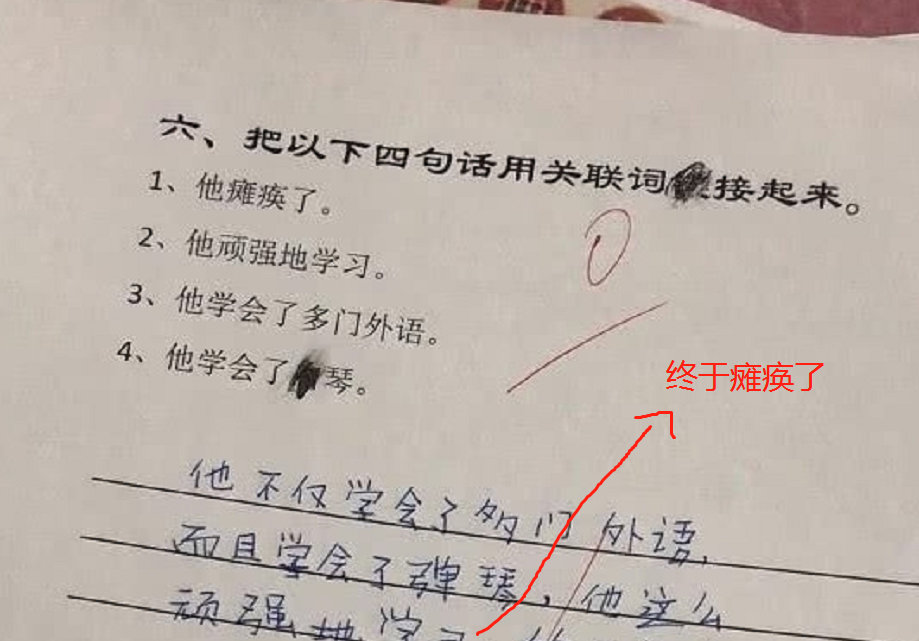 六、把以下四句话用关联词接起来。
1、他瘫痪了。
2、他顽强地学习。
3、他学会了多门外语。
4、他学会了琴。
0
终于瘫痪了
他不仅学会了多门外语,
而且学会了弹琴,他这么
顽强地学习